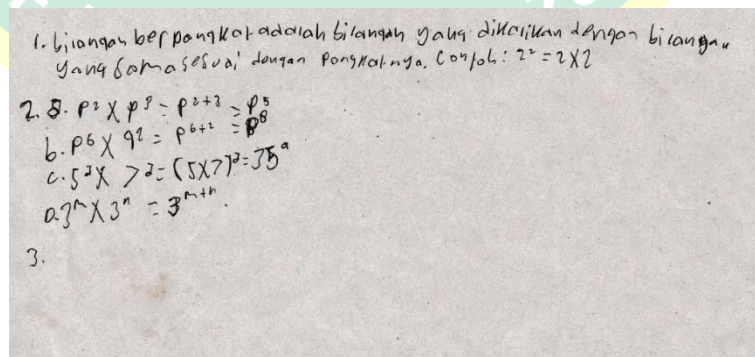 1. bilangan berpangkat adalah bilangan yang dikalikan dengan bilangan
yang sama sesuai dengan pangkatnya. Contoh: 2² = 2X2
2. a. p² X p³ = p²⁺³ = p⁵
b. p⁶ X q² = p⁶⁺² = p⁸
c. 5³ X 7³ = (5X7)³ = 35
D. 3ᵐ X 3ⁿ = 3ᵐ⁺ⁿ.
3.